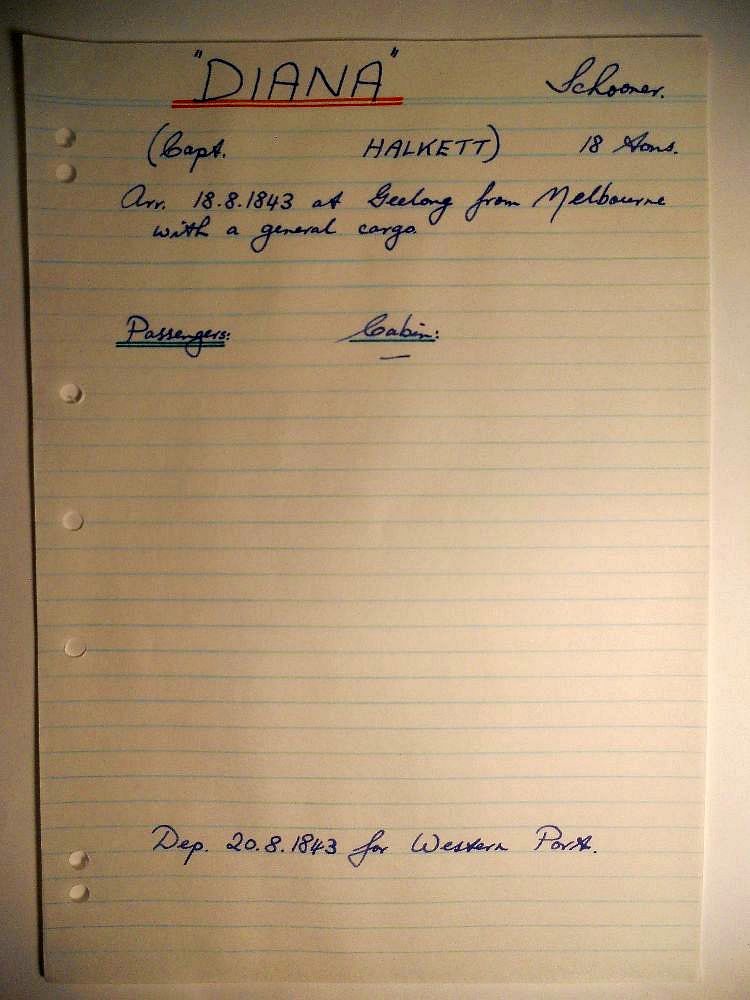 "DIANA" Schooner.
(Capt. HALKETT) 18 tons.
Arr. 18.8.1843 at Geelong from Melbourne
with a general cargo.
Passengers: Cabin:
—
Dep. 20.8.1843 for Western Port.